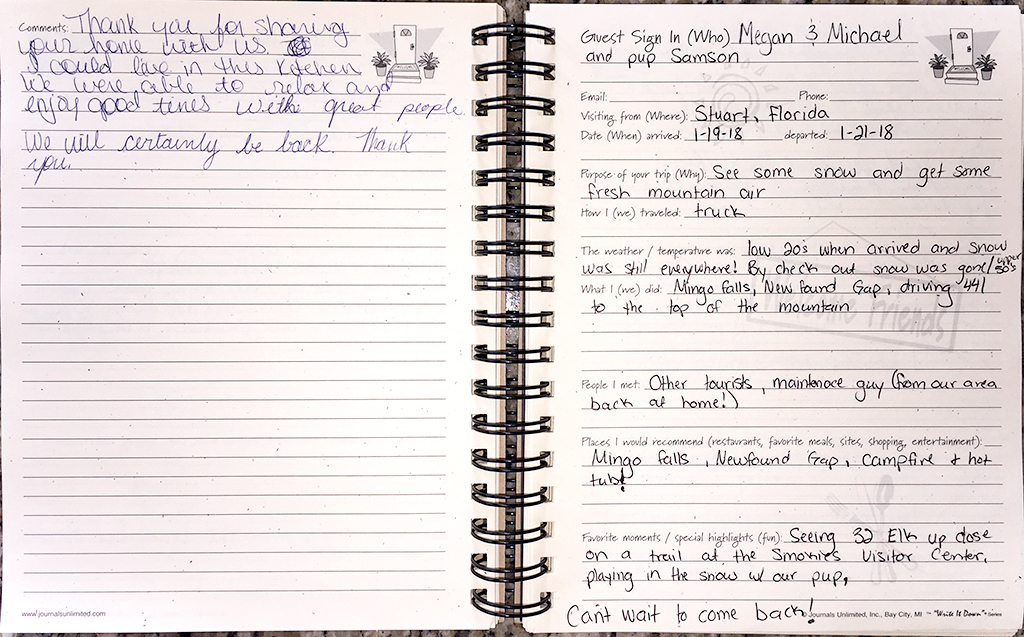 Comments: Thank you for sharing
your home with us
I could live in this kitchen
We were able to relax and
enjoy good times withe great people.
We will certainly be back. Thank
you.
www.journalsunlimited.com
Guest Sign In (Who) Megan & Michael
and pup Samson
Email: Phone:
Visiting from (Where): Stuart, Florida
Date (When) arrived: 1-19-18 departed: 1-21-18
Purpose of your trip (Why): See some snow and get some
fresh mountain air
How I (we) traveled: truck
The weather / temperature was: low 20's when arrived and snow
was still everywhere! By check out snow was gone/upper 50's
What I (we) did: Mingo falls, New found Gap, driving 441
to the top of the mountain
People I met: Other tourists, maintenace guy (from our area
back at home!)
Places I would recommend (restaurants, favorite meals, sites, shopping, entertainment):
Mingo falls, Newfound Gap, campfire & hot
tub!
Favorite moments / special highlights (fun): Seeing 32 Elk up close
on a trail at the Smokies Visitor Center,
playing in the snow w/ our pup,
Can't wait to come back!
© Journals Unlimited, Inc., Bay City, MI ™ "Write It Down"® Series